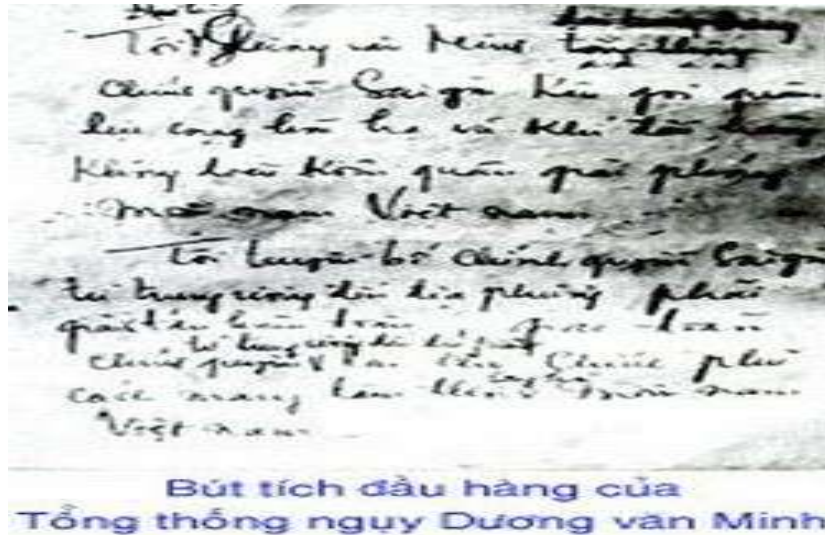 Tôi Dương văn Minh tổng thống
chính quyền Saigon kêu gọi quân
lực cộng hòa hạ vũ khí đầu hàng
không điều kiện quân giải phóng
miền nam Việt nam
Tôi tuyên bố chính quyền Saigon
từ trung ương đến địa phương phải
giải tán hoàn toàn giao toàn
từ trung ương đến địa phương
chính quyền lại chính phủ
cách mạng lâm thời miền nam
Việt nam
Bút tích đầu hàng của
Tổng thống ngụy Dương văn Minh